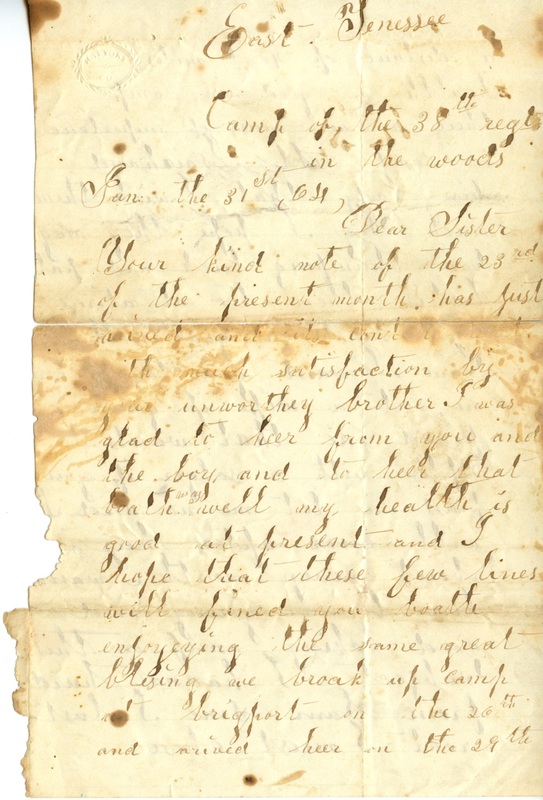 East Tenessee
Camp of, the 38th regt
in the woods
Jan the 31st 64,
Dear Sister
Your kind note of the 23rd
of the present month has just
and its
with much satisfaction by
your unworthey brother I was
glad to heer from you and
the boy and to heer that
boath was well my health is
good at present and I
hope that these few lines
will fined you boath
enjoyeying the same great
blesing we broak up camp
at brigport on the 26th
and arived heer on the 29th